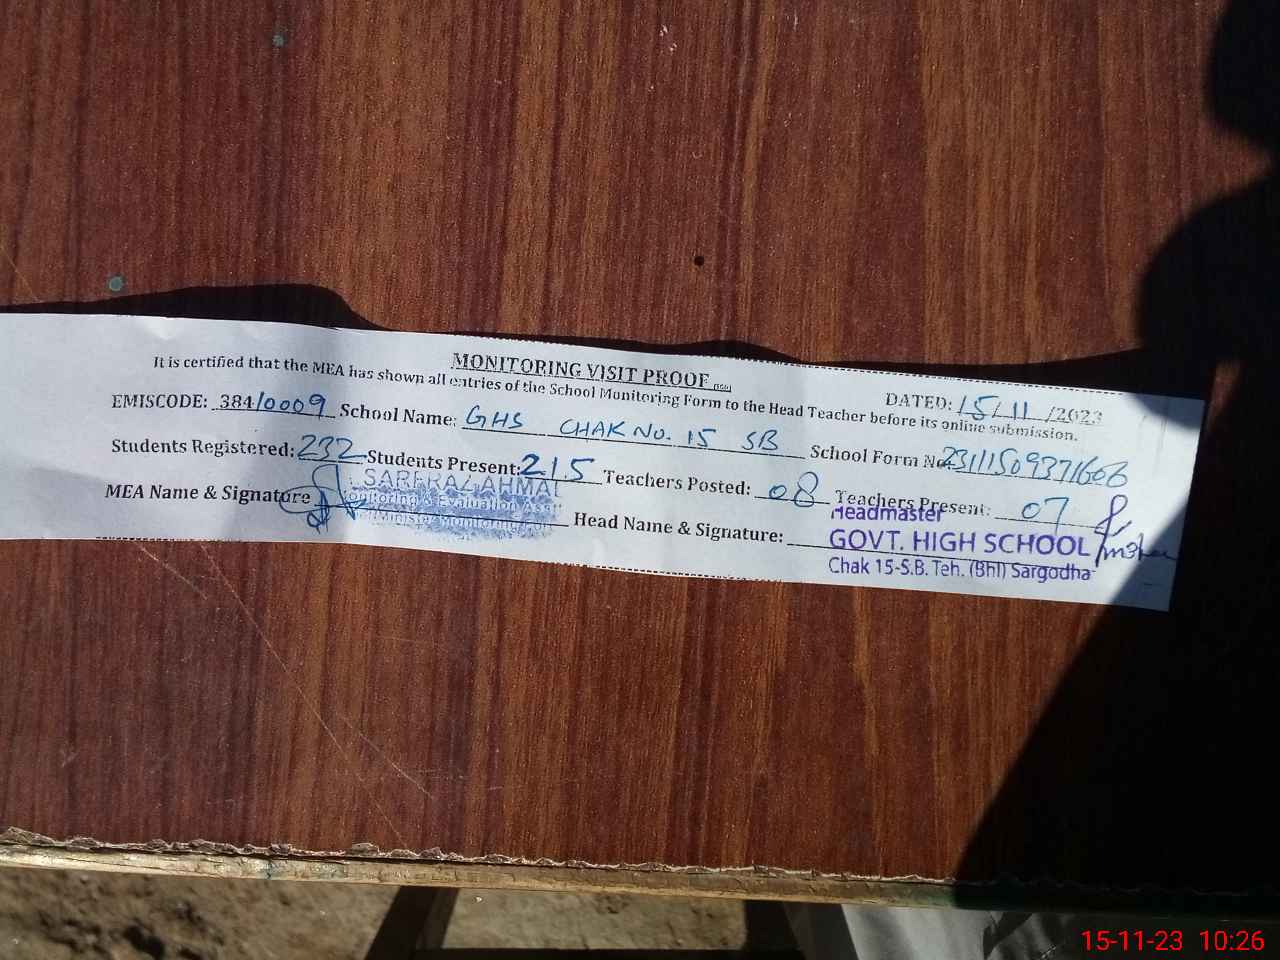 MONITORING VISIT PROOF
DATED: 15/11/2023
It is certified that the MEA has shown all entries of the School Monitoring Form to the Head Teacher before its online submission.
EMISCODE: 384/0009 School Name: GHS CHAK No. 15 SB School Form No
Students Registered: 232 Students Present: 215 Teachers Posted: 08 Teachers Present: 07
MEA Name & Signature Head Name & Signature:
SARFRAZ AHMAD
Monitoring & Evaluation Asst
Headmaster
GOVT. HIGH SCHOOL
Chak 15-S.B. Teh. (Bhl) Sargodha
15-11-23 10:26